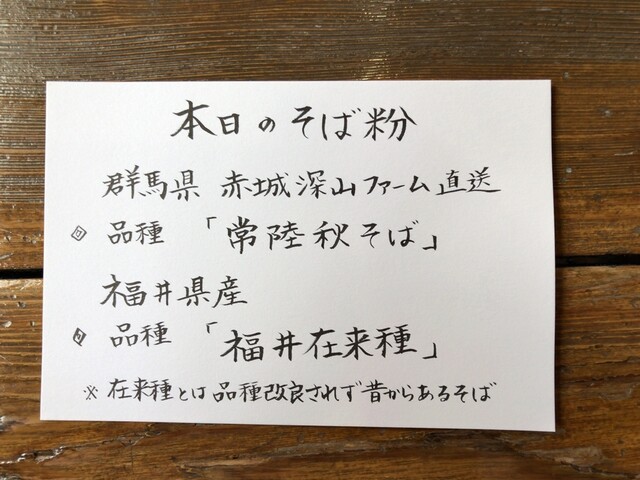 本日のそば粉
群馬県 赤城深山ファーム直送
品種 「常陸秋そば」
福井県産
品種 「福井在来種」
※在来種とは品種改良されず昔からあるそば